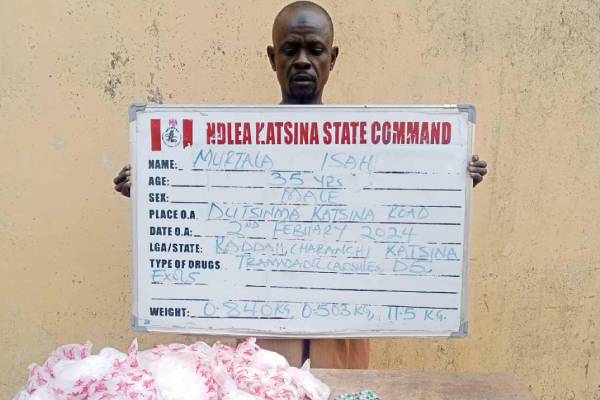 NDLEA KATSINA STATE COMMAND
NAME: MURTALA ISAH
AGE: 35 YRS
SEX: MALE
PLACE O.A: DUTSINMA KATSINA ROAD
DATE O.A: 2ND FEBUARY 2024
LGA/STATE: KADDAH, CHARANCHI KATSINA
TYPE OF DRUGS TRAMADOL CAPSULES, D5,
EXOL5
WEIGHT: 0.840KG, 0.503KG, 11.5 KG.